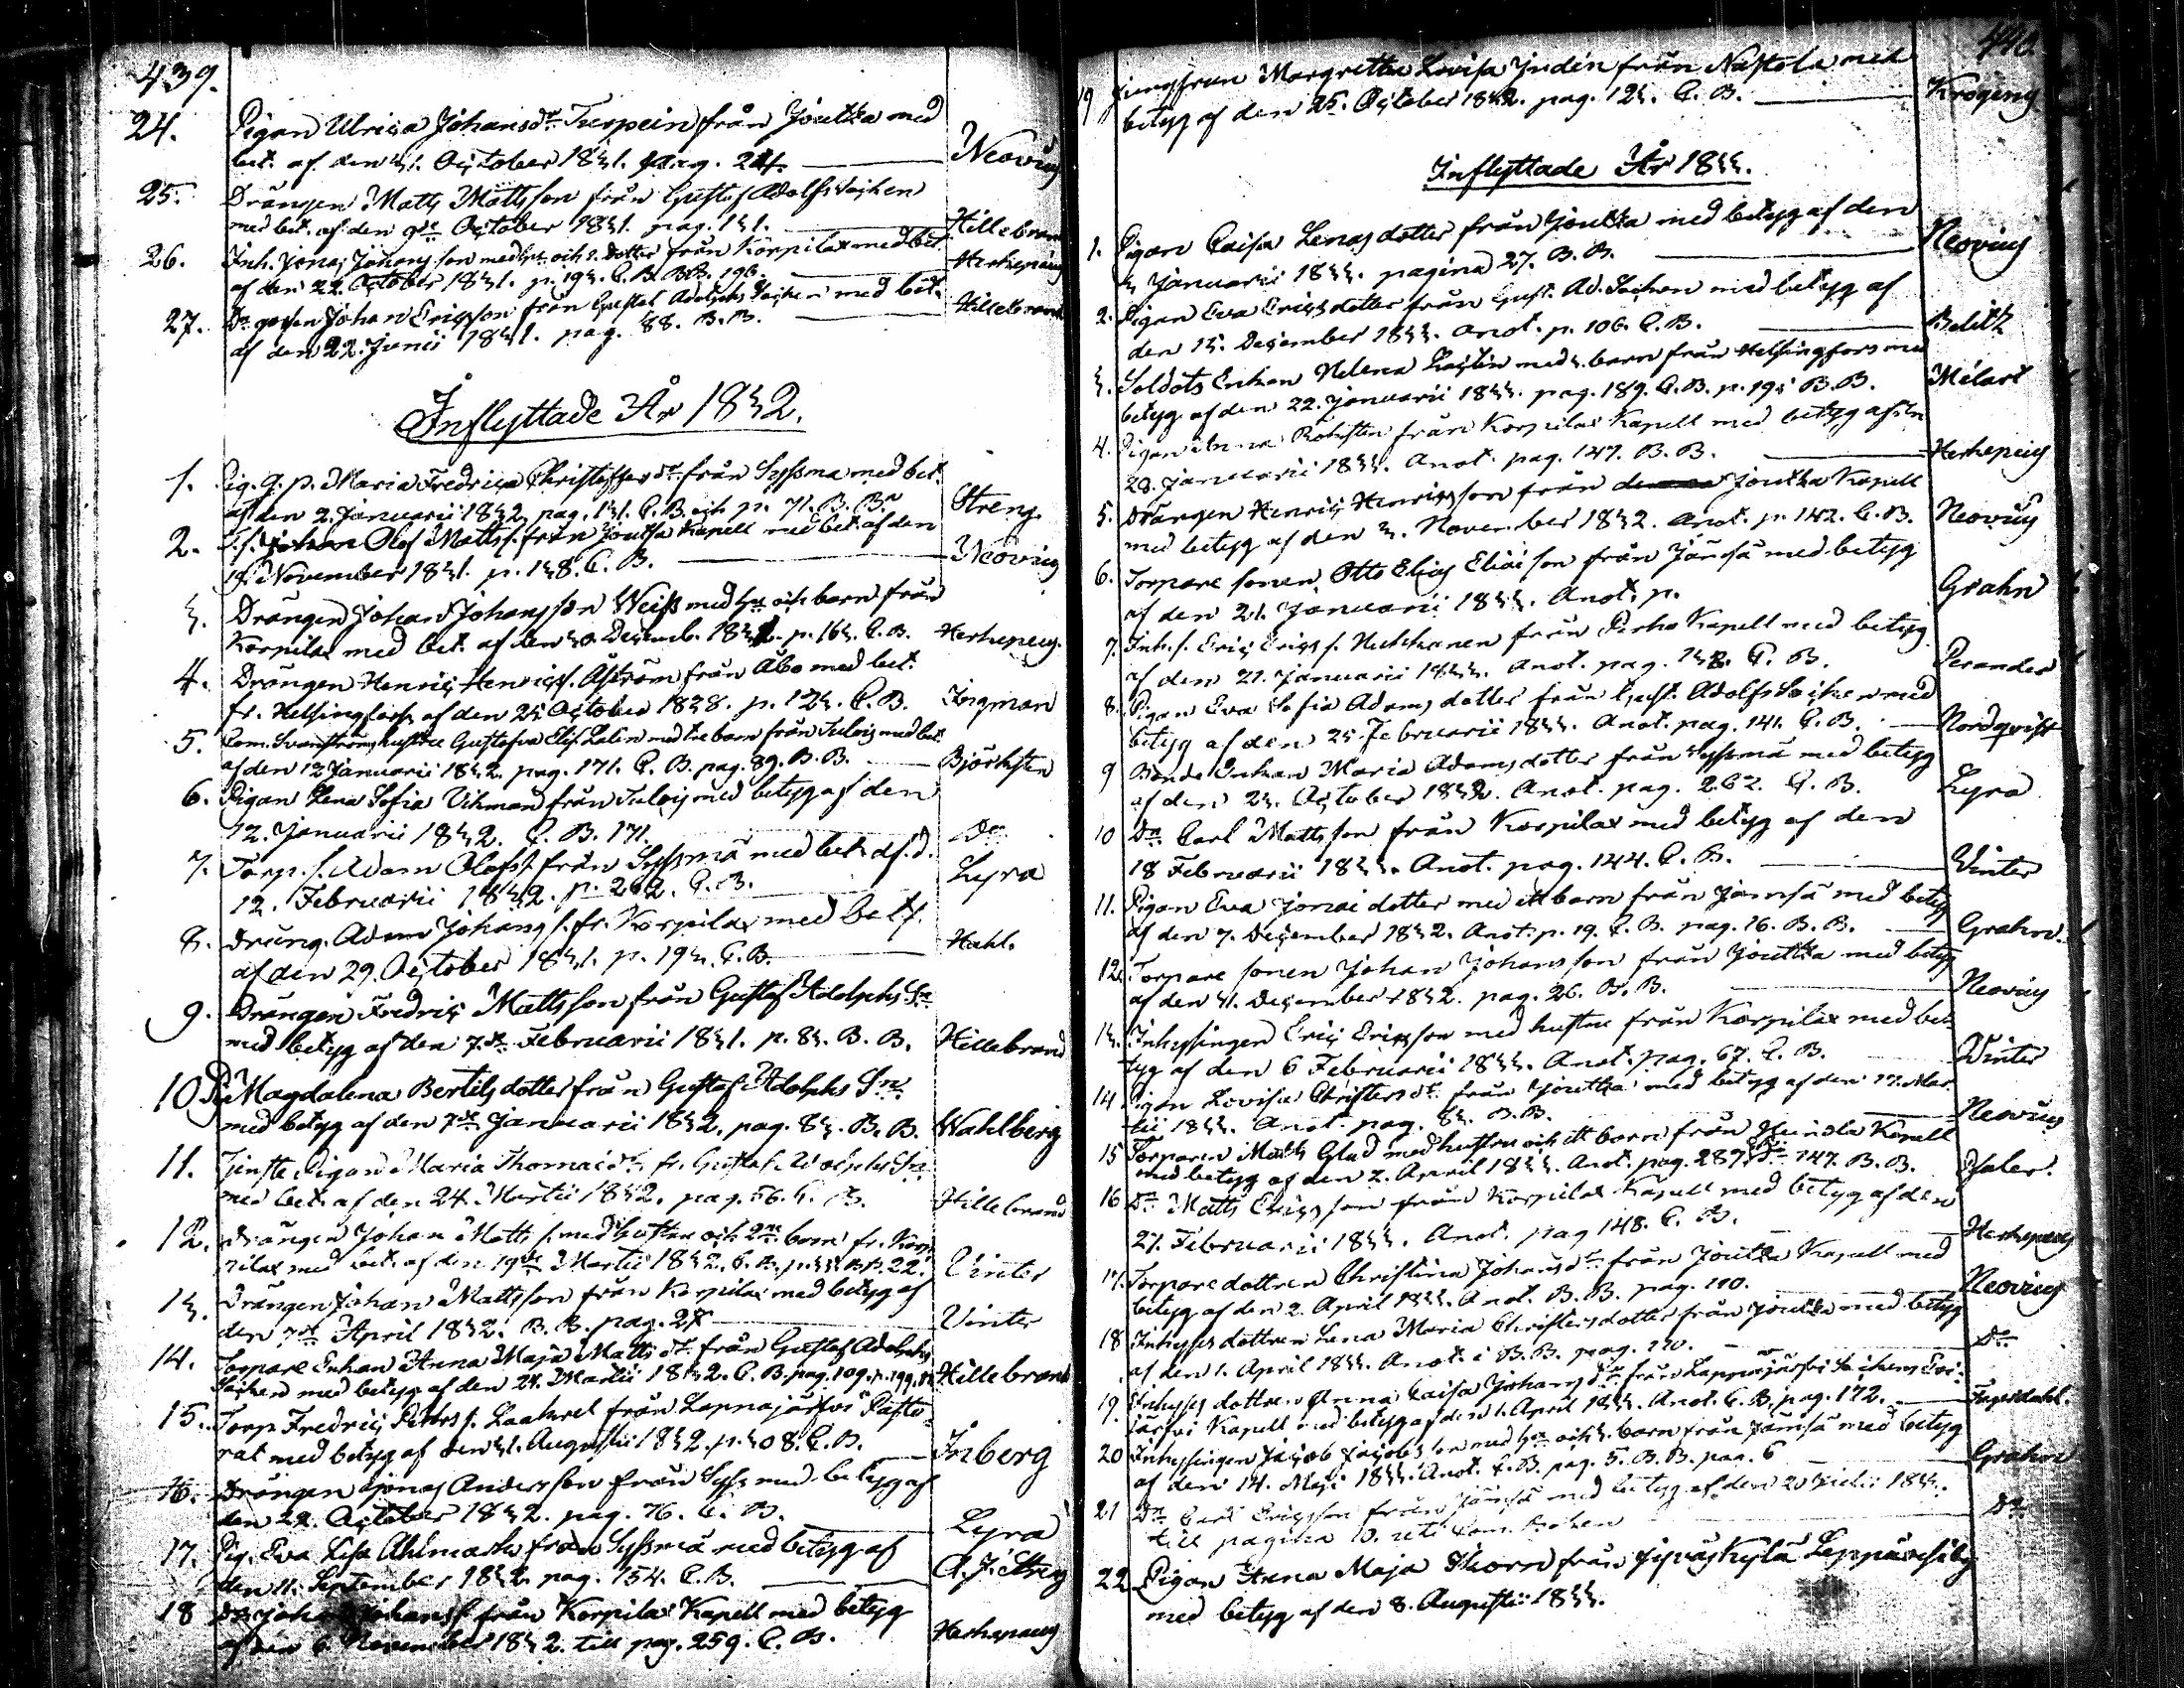 439.
24. Pigan Ulrica Johansdr Turpein från Joutsa med
bet. af den 31. October 1831. pag. 24. Neovius
25. Drängen Matts Mattsson från Gustaf Adolfs Socken
med bet. af den 9de October 1831. pag. 131. Hillebrand
26. Inh. Jonas Johansson med hu och 2. dotter från Korpilax med bet.
af den 22. October 1831. p. 193. C. B. BB. 196.
27. Drgossen Johan Ericsson från Gustaf Adolphs Socken med bet.
af den 22. Junii 1831. pag. 88. B. B. Hillebrand
Inflyttade År 1832.
1. Pig. g. p. Maria Fredrica Christoffersdr från Sysmä med bet.
af den 2. Januarii 1832 pag. 131. C. B. och p. 71. B. B. Streng
2. T. s. Johan Olof Mattss. från Joutsa Kapell med bet. af den
19. November 1831. p. 138. C. B. Neovius
3. Drängen Johan Johansson Weiss med hu och barn från
Korpilax med bet. af den 30. Decemb. 1831. p. 163. C. B.
4. Drängen Henric Henricss. Åström från Åbo med bet.
fr. Helsingfors af den 25 October 1838. p. 123. C. B. Ingman
5. Com. Svanströms hustru Gustafva Elis. Zalin med tre barn från Sulois med bet.
af den 12 Januarii 1832. pag. 171. C. B. pag. 89. B. B. Björksten
6. Pigan Lena Sofia Vikman från Sulois med betyg af den
12. Januarii 1832. C. B. 171. Do
7. Torp. s. Adam Olofss. från Sysmä med bet. af d.
12. Februarii 1832. p. 262. C. B. Lyra
8. Dräng. Adam Johanss. fr. Korpilax med bet.
af den 29. October 1831. p. 193. C. B. Hahl.
9. Drängen Fredric Mattsson från Gustaf Adolphs Sn
med betyg af den 7de Februarii 1831. p. 83. B. B. Hillebrand
10 Pi. Magdalena Bertils dotter från Gustaf Adolphs Sn
med betyg af den 7de Januarii 1832. pag. 83. B. B. Wahlberg
11. Tjenste Pigan Maria Thomaedr fr. Gustaf Adolphs Sn
med bet. af den 24. Martii 1832. pag. 56. C. B. Hillebrand
12. Drängen Johan Matts s. med hustru och 2ne barn fr. Korpi
pilax med bet. af den 19de Martii 1832. C. B. p. 33 BB. 22. Vinter
13. Drängen Johan Mattsson från Korpilax med betyg af
den 7de April 1832. B. B. pag. 27 Vinter
14. Torpare Enkan Anna Maja Mattsdr från Gustaf Adolphs
Socken med betyg af den 21. Martii 1832. C. B. pag. 109. p. 199. Hillebrand
15. Torp. Fredric Peters s. Laakrel från Lappajärfvi Pasto
rat med betyg af den 31. Augustii 1832. p. 308. C. B. Inberg
16. Drängen Jonas Andersson från Syss. med betyg af
den 22. October 1832. pag. 76. C. B. Lyra
17. Pig. Eva Lisa Ahlmark från Sysmä med betyg af
den 11. September 1832. pag. 154. C. B. A. J. Streng
18 Dr. Johan Johanss. från Korpilax Kapell med betyg
af den 6. November 1832. till pag. 259. C. B.
440.
19 Jungfrun Margretha Lovisa Judén från Nastola med
betyg af den 25. October 1832. pag. 123. C. B. Krogius
Inflyttade År 1833.
1. Pigan Caisa Lenas dotter från Joutsa med betyg af den
3 Januarii 1833. pagina 27. B. B. Neovius
2. Pigan Eva Erics dotter från Gust. Ad. Socken med betyg af
den 13. December 1833. Anot. p. 106. C. B. Belitz
3. Soldats Enkan Helena Laxlin med 3. barn från Helsingfors med
betyg af den 22. Januarii 1833. pag. 189. C. B. p. 195 B. B. Melart
4. Pigan Anna från Korpilax Kapell med betyg af den
28. Januarii 1833. Anot. pag. 147. B. B.
5. Drängen Henric Henricsson från Joutsa Kapell
med betyg af den 3. November 1832. Anot. p. 142. C. B. Neovius
6. Torpare sonen Otto Elias Eliaeson från Jämsä med betyg
af den 21. Januarii 1833. Anot. p. Grahn
7. Inh. s. Eric Erics s. Hukkanen från Perho Kapell med betyg
af den 21. Januarii 1833. Anot. pag. 138. C. B. Perander
8. Pigan Eva Sofia Adams dotter från Gust. Adolfs Socken med
betyg af den 25. Februarii 1833. Anot. pag. 141. C. B. Nordqvist
9 Bonde Enkan Maria Adams dotter från Sysmä med betyg
af den 23. October 1832. Anot. pag. 262. C. B. Lyra
10 Dr. Carl Mattsson från Korpilax med betyg af den
18 Februarii 1833. Anot. pag. 144. C. B. Vinter
11. Pigan Eva Jonae dotter med ett barn från Jämsä med betyg
af den 7. December 1832. Anot. p. 19. C. B. pag. 16. B. B. Grahn.
12. Torpare sonen Johan Johansson från Joutsa med betyg
af den 31. December 1832. pag. 26. B. B. Neovius
13. Inhysingen Eric Ericsson med hustru från Korpilax med be-
tyg af den 6 Februarii 1833. Anot. pag. 67. C. B. Vinter
14. Pigan Lovisa Christersdr från Joutsa med betyg af den 17. Mar
tii 1833. Anot. pag. 83. B. B. Neovius
15 Torparen Matts Glad med hustru och ett barn från Kapell
med betyg af den 2. April 1833. Anot. pag. 287. 147. B. B.
16 Dr. Matts Ericsson från Korpilax Kapell med betyg af den
21. Februarii 1833. Anot. pag 148. C. B.
17. Torpare dottren Christina Johansdr från Joutsa Kapell med
betyg af den 2. April 1833. Anot. B. B. pag. 110. Neovius
18 Inhyses dottren Lena Maria Christersdotter från Joutsa med betyg
af den 1. April 1833. Anot. i B. B. pag. 110. Do
19. Inhyses dottren Anna Caisa Johansdr från Lappajärfvi Sockens Evi-
järfvi Kapell med betyg af den 1. April 1833. Anot. C. B. pag. 172.
20 Inhysingen Jacob Jacobsson med hu och 3. barn från Jämsä med betyg
af den 14. Maji 1833. Anot. C. B. pag. 5. B. B. pag. 6 Grahn
21 Dr. Carl Ericsson från Jämsä med betyg af den 20 Julii 1833.
till pagina 10. uti Com. Boken Do
22 Pigan Anna Maja Thorn från Jyväskylä LeppäveSi by
med betyg af den 8. Augusti 1833.